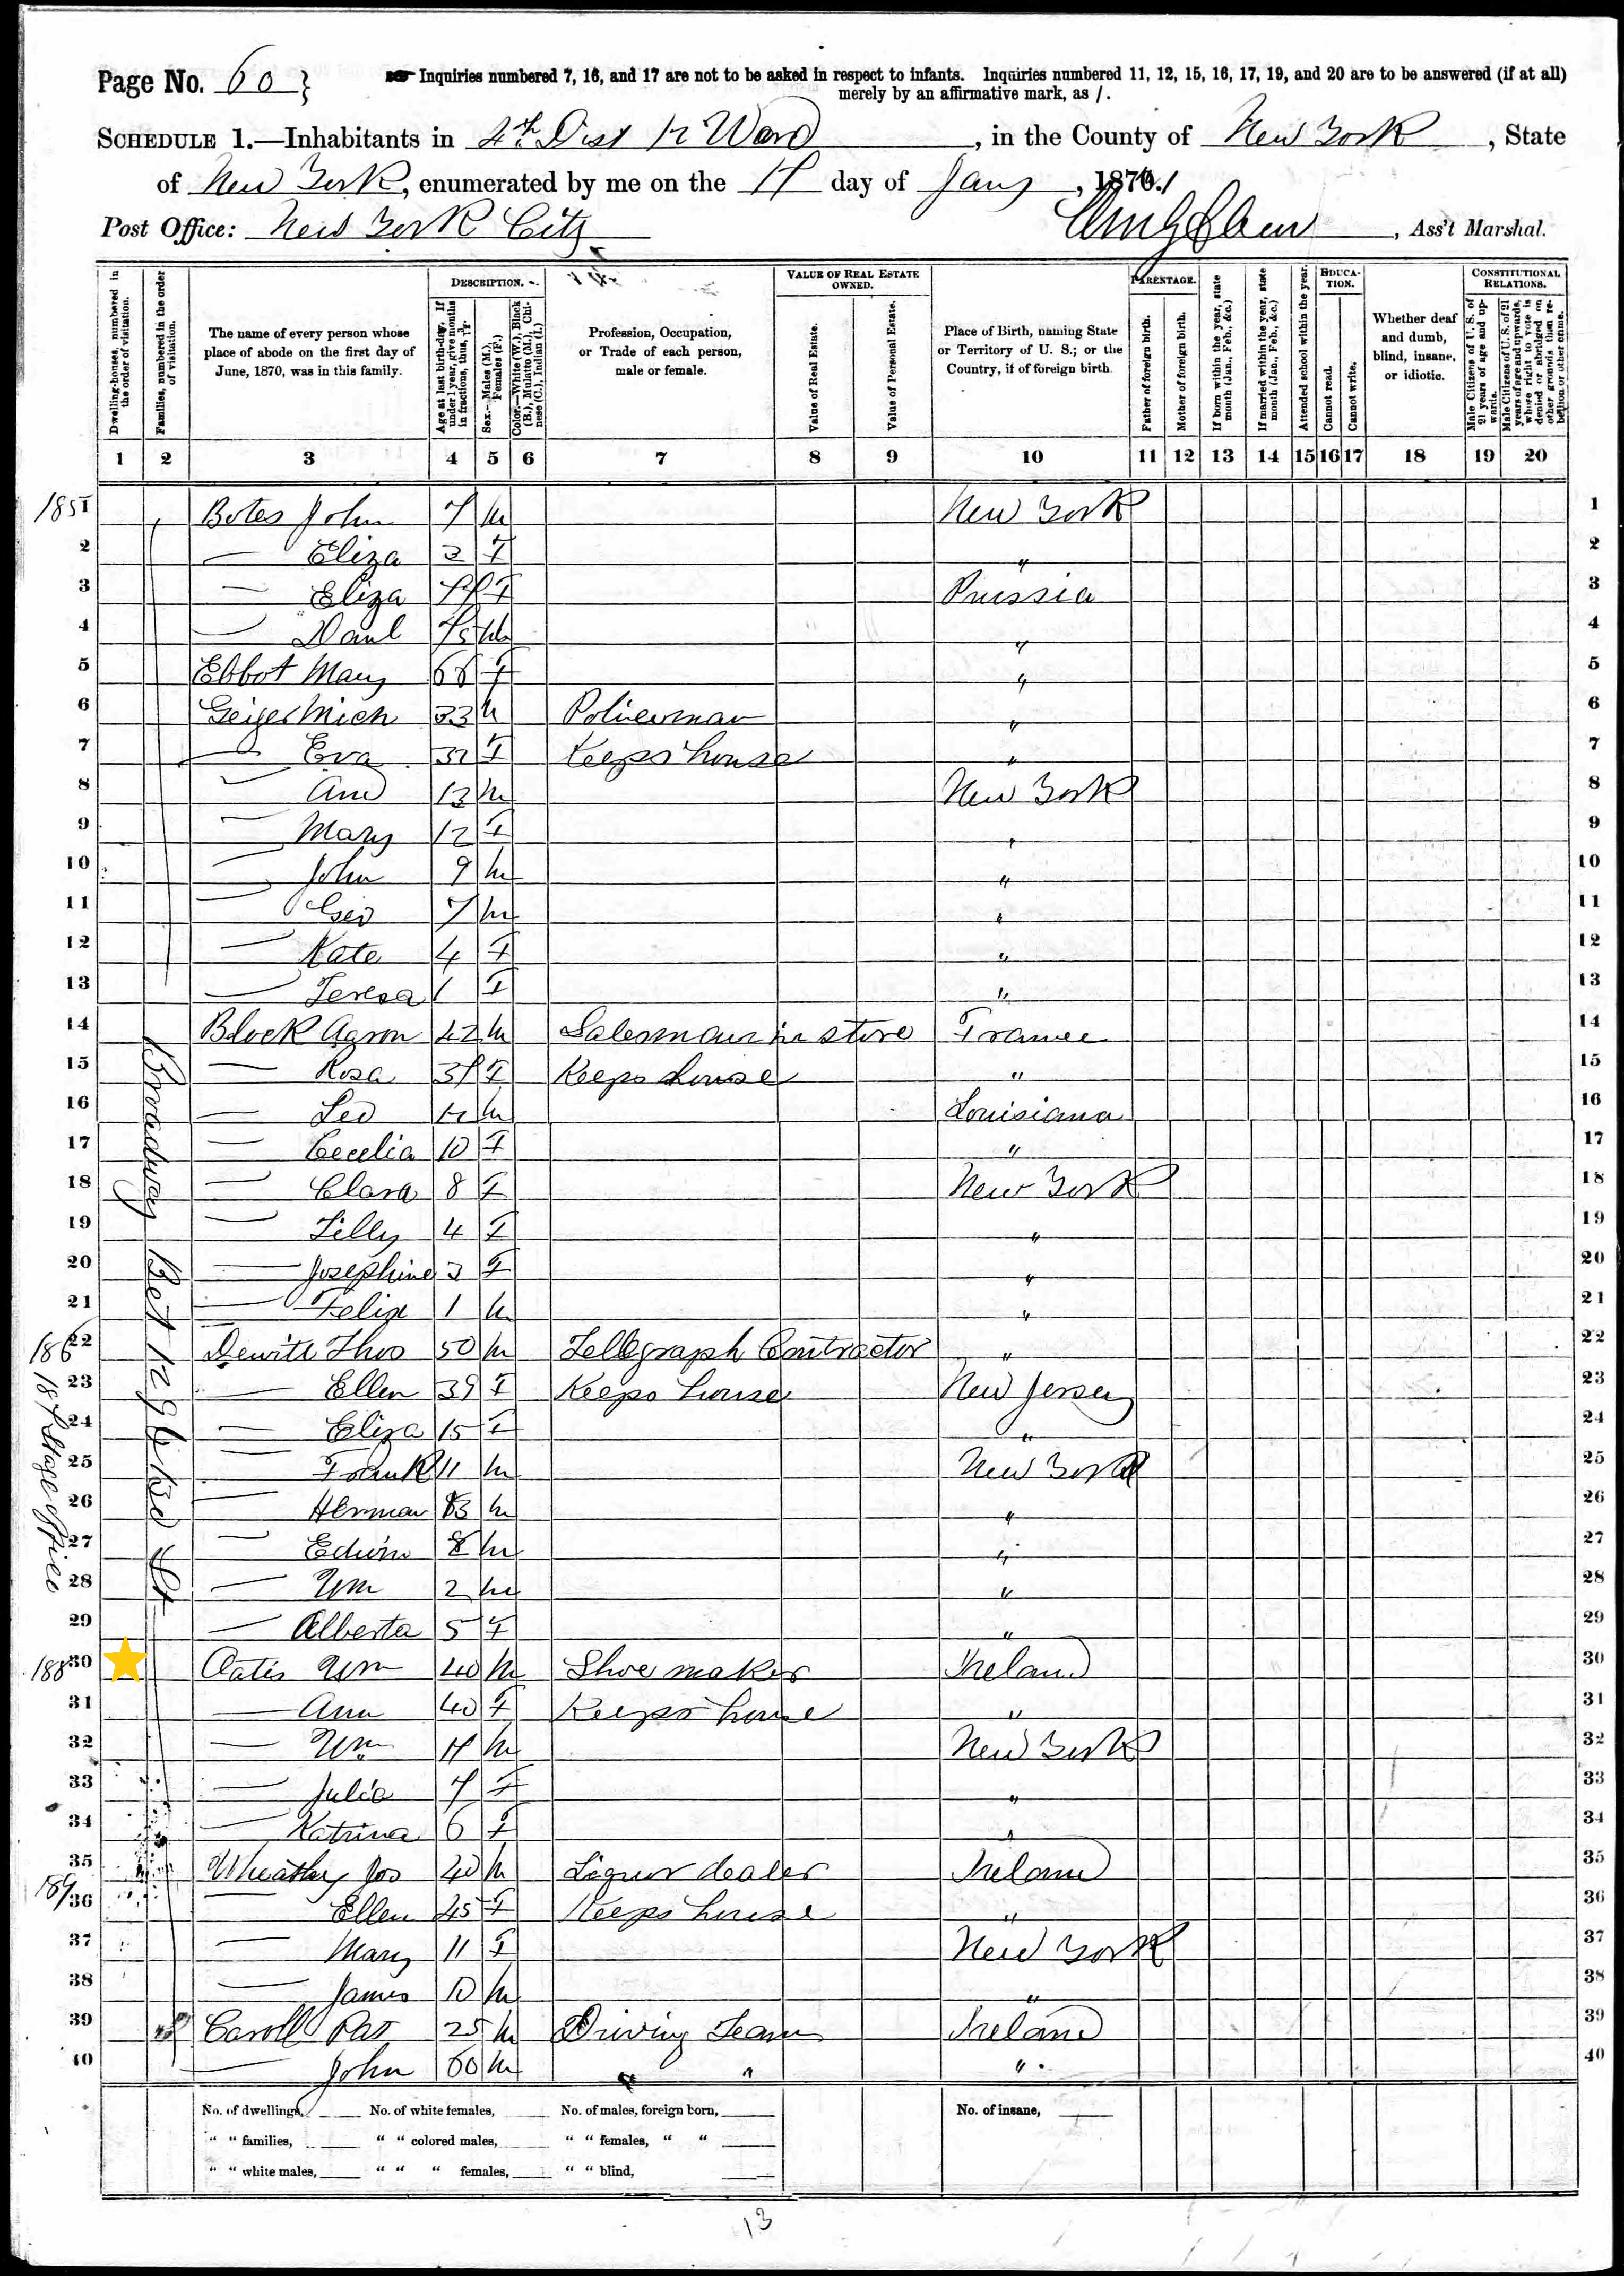 Page No. 60 }
Inquiries numbered 7, 16, and 17 are not to be asked in respect to infants. Inquiries numbered 11, 12, 15, 16, 17, 19, and 20 are to be answered (if at all)
merely by an affirmative mark, as /.
SCHEDULE 1.—Inhabitants in 4th Dist 12 Ward, in the County of New York, State
of New York, enumerated by me on the day of Jany, 1870.1
Post Office: New York City , Ass't Marshal.
Dwelling-houses, numbered in the order of visitation.
Families, numbered in the order of visitation.
The name of every person whose place of abode on the first day of June, 1870, was in this family.
DESCRIPTION.
Age at last birth-day. If under 1 year, give months in fractions, thus, 3/12.
Sex.—Males (M.), Females (F.)
Color.—White (W.), Black (B.), Mulatto (M.), Chinese (C.), Indian (I.)
Profession, Occupation, or Trade of each person, male or female.
VALUE OF REAL ESTATE OWNED.
Value of Real Estate.
Value of Personal Estate.
Place of Birth, naming State or Territory of U. S.; or the Country, if of foreign birth.
PARENTAGE.
Father of foreign birth.
Mother of foreign birth.
If born within the year, state month (Jan., Feb., &c.)
If married within the year, state month (Jan., Feb., &c.)
Attended school within the year.
EDUCATION.
Cannot read.
Cannot write.
Whether deaf and dumb, blind, insane, or idiotic.
CONSTITUTIONAL RELATIONS.
Male Citizens of U. S. of 21 years of age and upwards.
Male Citizens of U. S. of 21 years of age and upwards, whose right to vote is denied or abridged on other grounds than rebellion or other crime.
1 2 3 4 5 6 7 8 9 10 11 12 13 14 15 16 17 18 19 20
185 1 Botes John 7 M New York 1
2 — Eliza 2 F " 2
3 — Eliza F Prussia 3
4 — 75 M " 4
5 Ebbot Mary 68 F " 5
6 Geiger Mich 33 M Policeman " 6
7 — Eva 32 F Keeps house " 7
8 — And 13 M New York 8
9 — Mary 12 F " 9
10 — John 9 M " 10
11 — Geo 7 M " 11
12 — Kate 4 F " 12
13 — Teresa 1 F " 13
14 Block Aaron 42 M Salesman in store France 14
15 — Rosa F Keeps house " 15
16 — Leo 12 M Louisiana 16
17 — Cecelia 10 F " 17
18 — Clara 8 F New York 18
19 — Lilly 4 F " 19
20 — Josephine 3 F " 20
21 — Felix 1 M " 21
186 22 Dewitt Thos 50 M Tellegraph Contractor " 22
23 — Ellen 39 F Keeps house New Jersey 23
24 — Eliza 15 F " 24
25 — Frank 11 M New York 25
26 — Herman 13 M " 26
27 — Edwin 8 M " 27
28 — Wm 2 M " 28
29 — Alberta 5 F " 29
187 Stage office
Broadway Bet 129 & 130 St
188 30 Oatis Wm 40 M Shoe maker Ireland 30
31 — Ann 40 F Keeps house " 31
32 — Wm M New York 32
33 — Julia 7 F " 33
34 — Katrina 6 F " 34
35 Wheatley Jos 40 M Liquor dealer Ireland 35
189 36 — Ellen 45 F Keeps house " 36
37 — Mary 11 F New York 37
38 — James 10 M " 38
39 Caroll Pat 25 M Driving Team Ireland 39
40 — John 60 M " " " 40
No. of dwellings, No. of white females, No. of males, foreign born, No. of insane,
" " families, " " colored males, " " females, " "
" " white males, " " " females, " " blind,
13